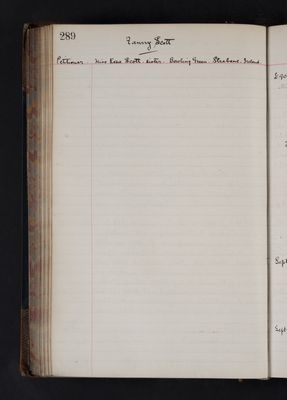 289
Fanny Scott
Petitioner. Miss Kate Scott. sister. Bowling Green. Strabane. Ireland.
Sept
Sept